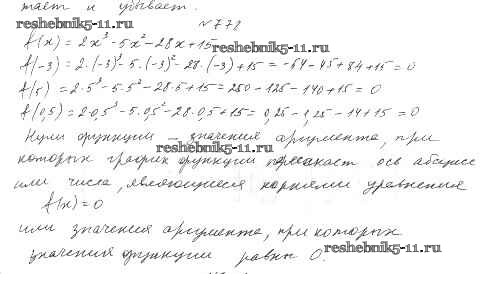 тает и убывает.
reshebnik5-11.ru
№778
f(x) = 2x³-5x²-28x+15
reshebnik5-11.ru
f(-3) = 2·(-3)³-5·(-3)²-28·(-3)+15 = -54-45+84+15=0
f(5) = 2·5³-5·5²-28·5+15=250-125-140+15=0
f(0,5) = 2·0,5³-5·0,5²-28·0,5+15= 0,25-1,25-14+15=0
Нули функции – значения аргумента, при
reshebnik5-11.ru
которых график функции пересекает ось абсцисс
или числа, являющиеся корнями уравнения
f(x)=0
или значения аргумента, при которых
reshebnik5-11.ru
значения функции равны 0.